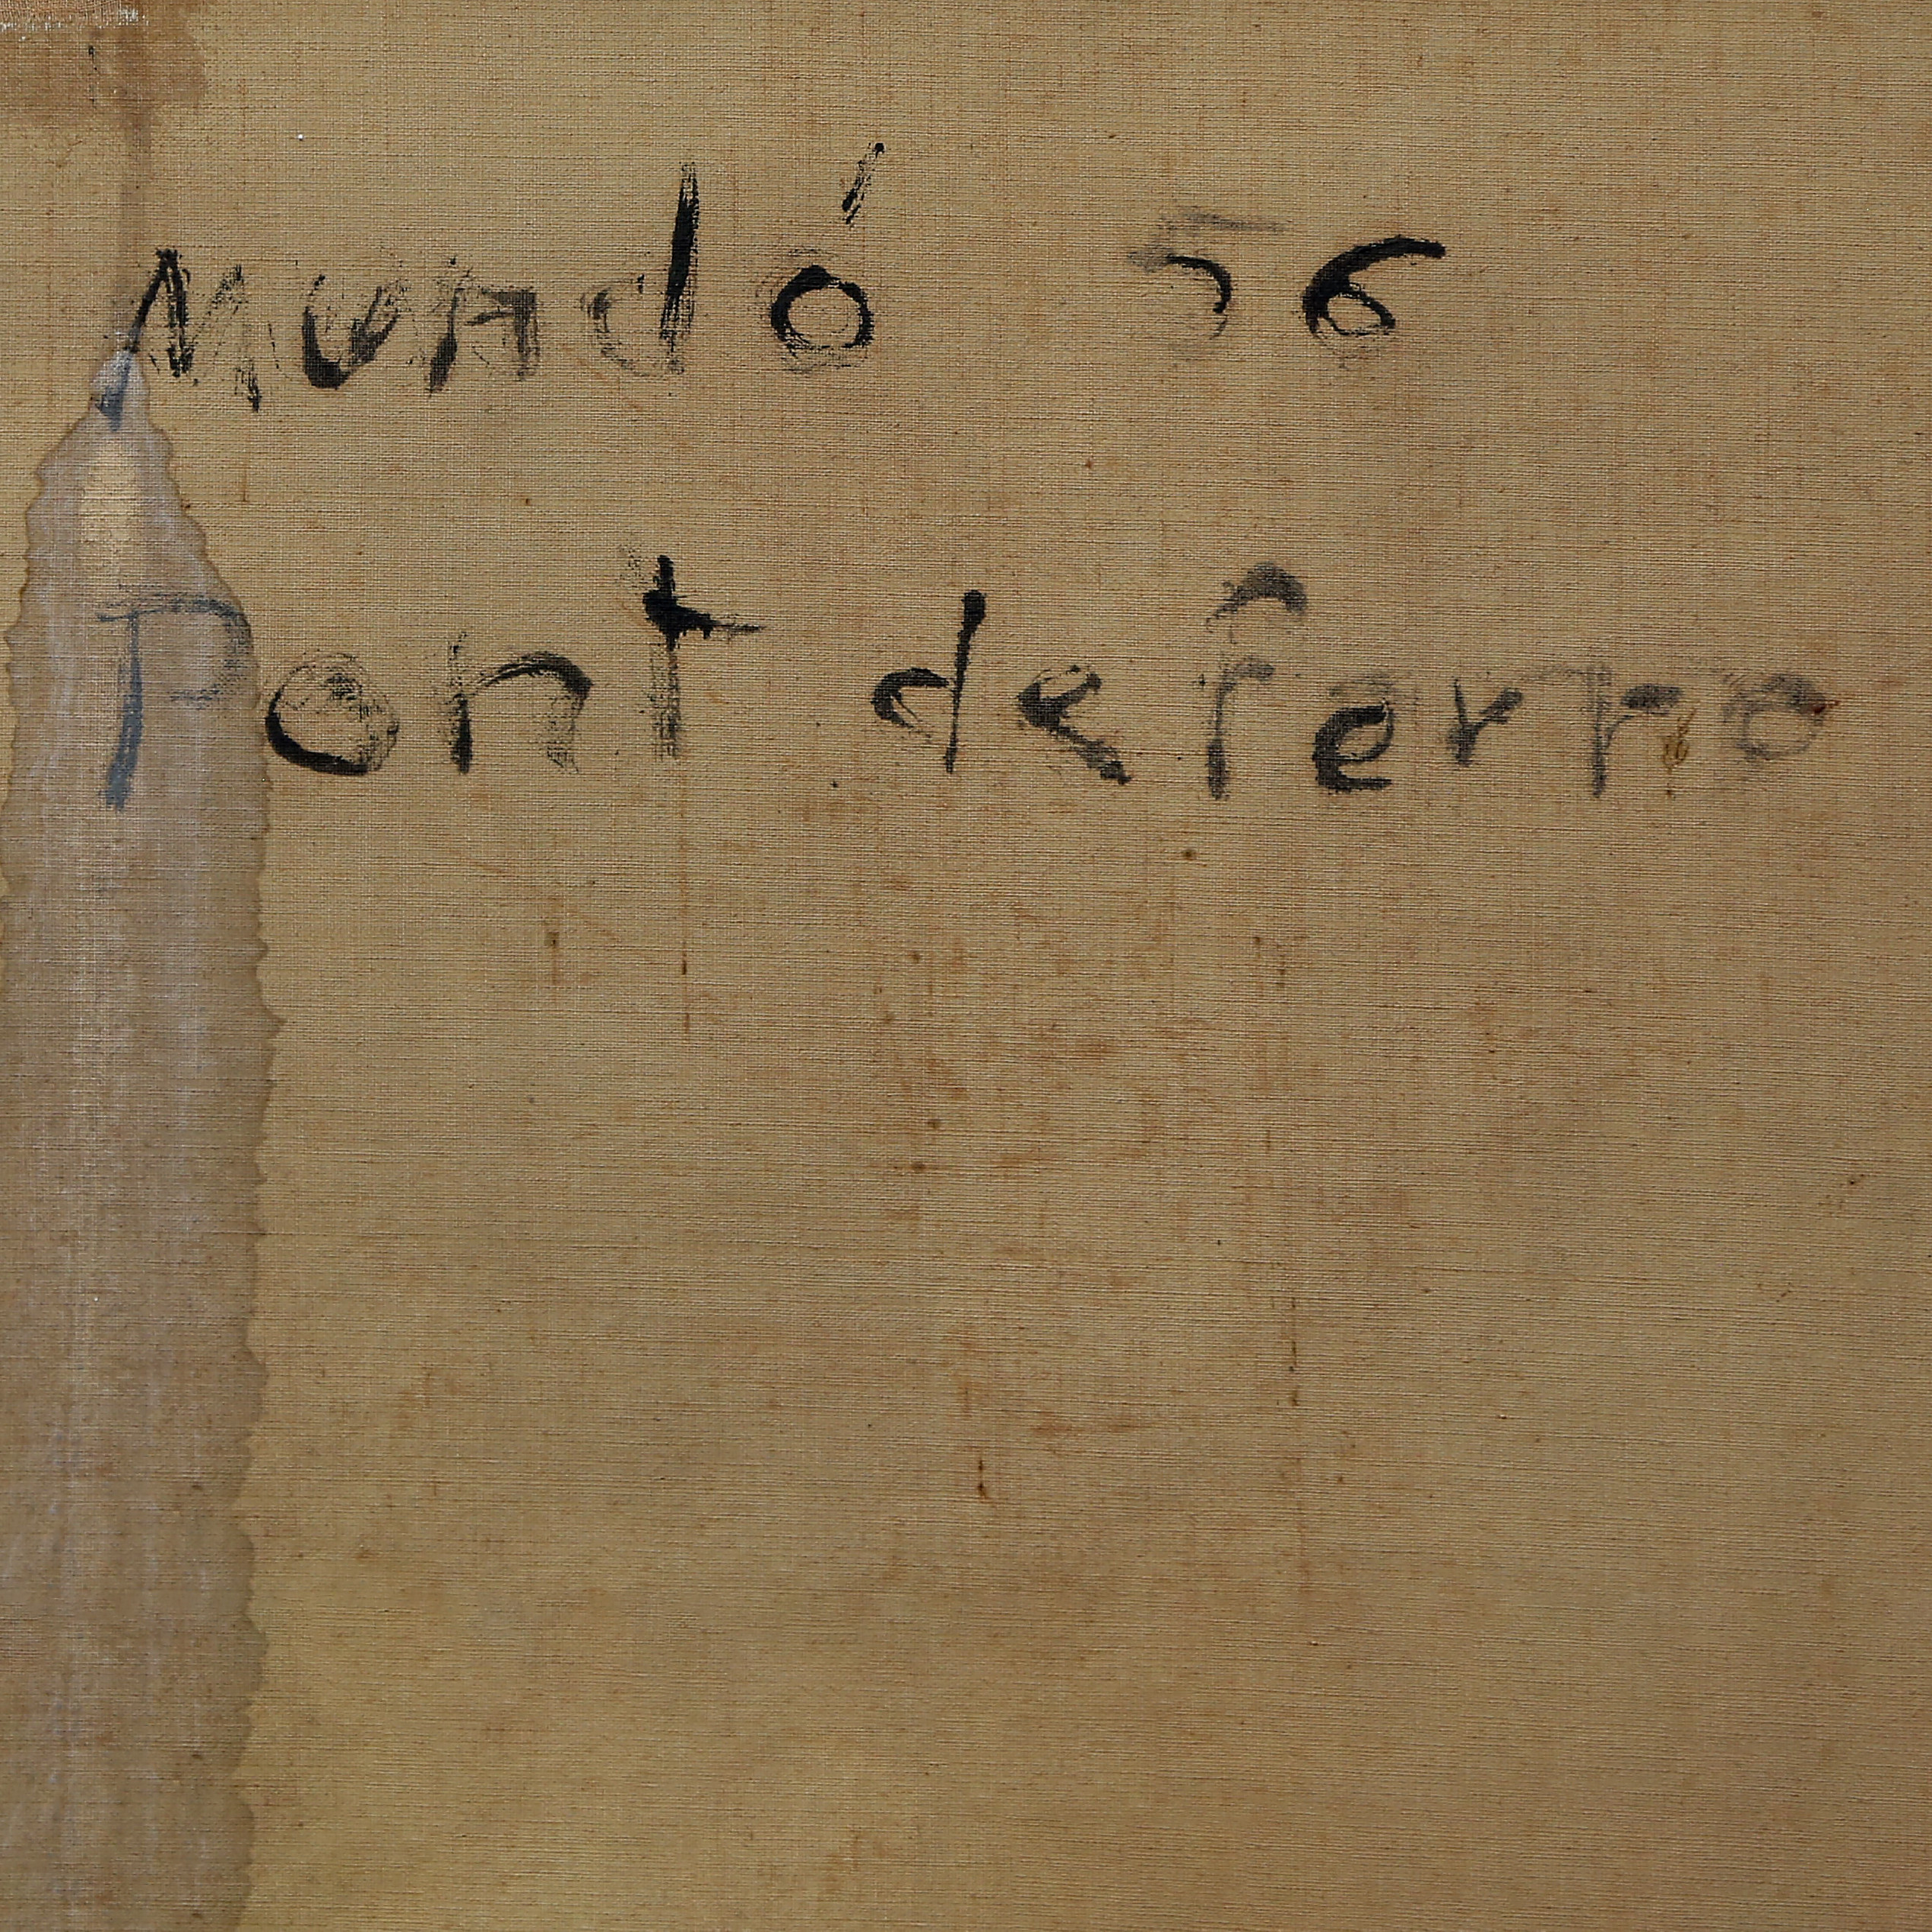 Mundó 56
Pont de ferro